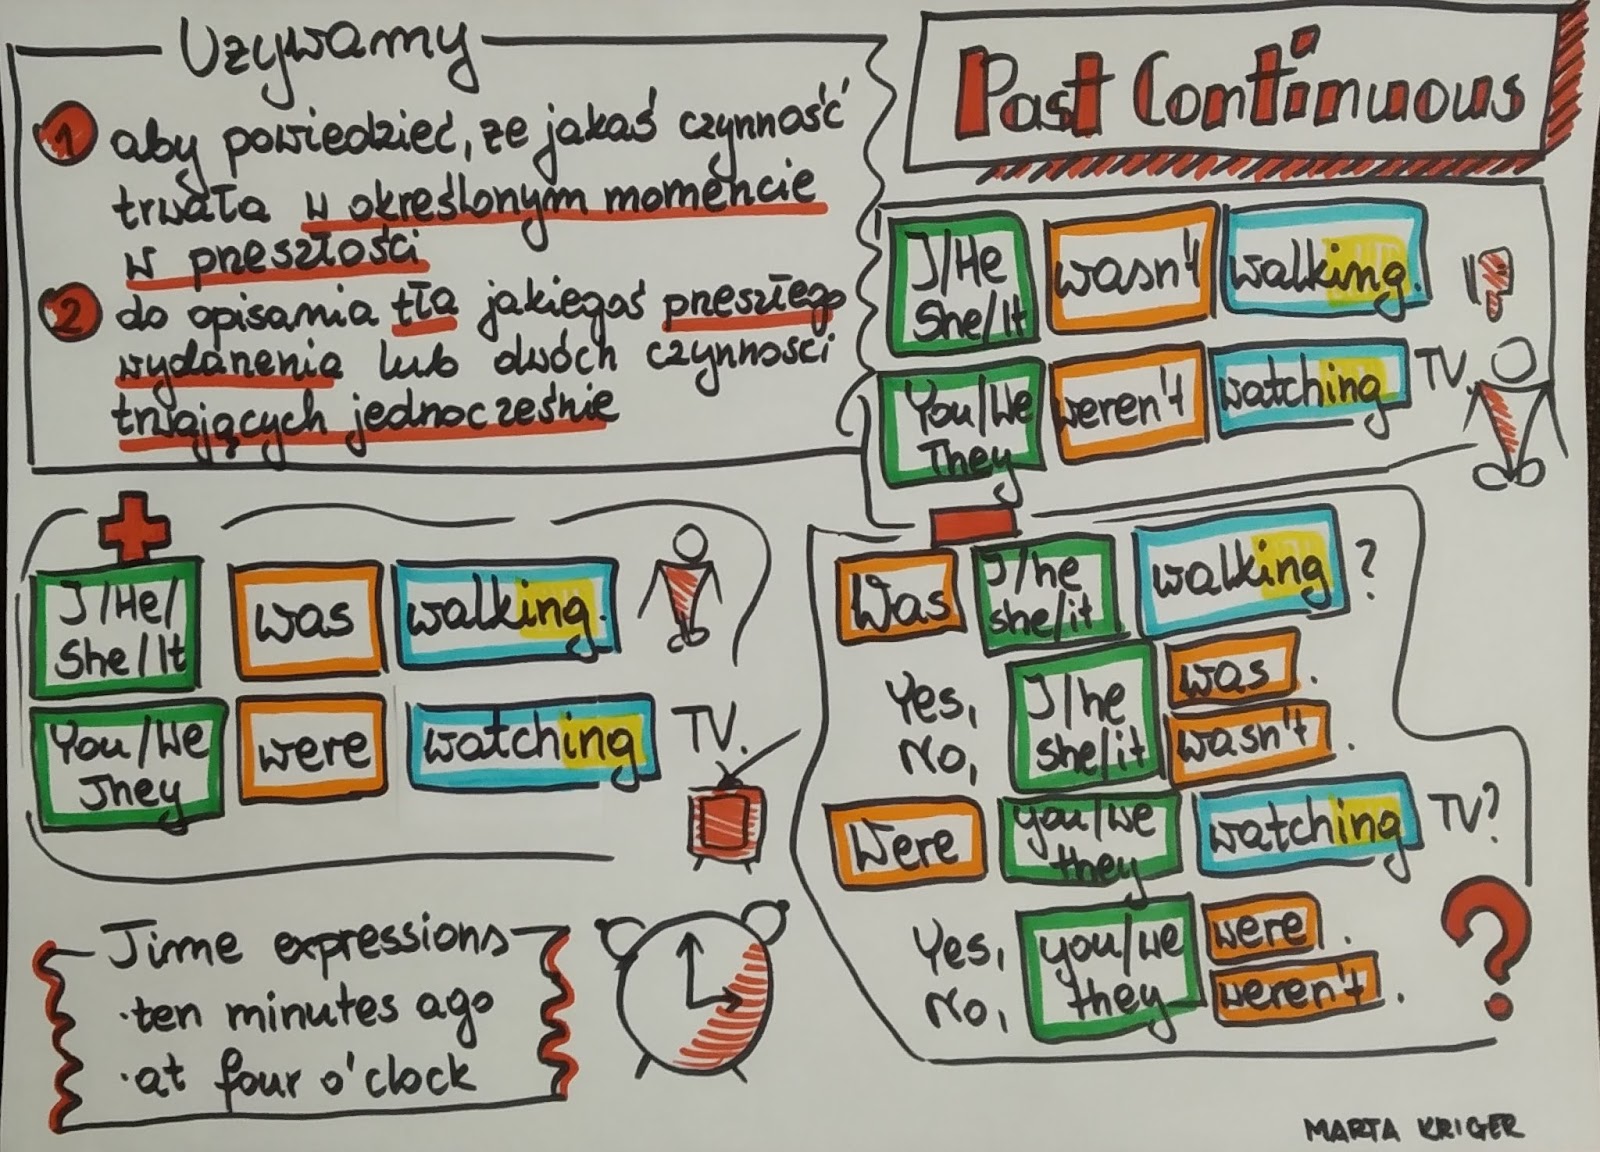 Używamy
1 aby powiedzieć, że jakaś czynność
trwała w określonym momencie
w przeszłości
2 do opisania tła jakiegoś przeszłego
wydarzenia lub dwóch czynności
trwających jednocześnie
Past Continuous
I/He
She/It
wasn't
walking.
You/We
They
weren't
watching
TV.
I/He/
She/It
was
walking.
You/We
They
were
watching
TV.
Was
I/he
she/it
walking
?
Yes,
No,
I/he
she/it
was.
wasn't.
Were
you/we
they
watching
TV?
Yes,
No,
you/we
they
were.
weren't.
Time expressions
·ten minutes ago
·at four o'clock
MARTA KRIGER